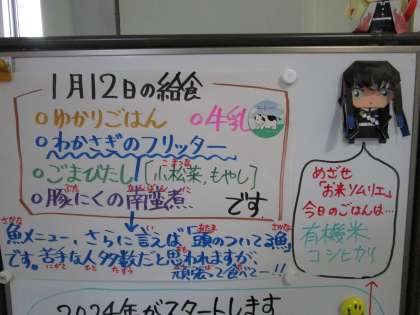 1月12日の給食
○ゆかりごはん ○牛乳
○わかさぎのフリッター
○ごまびたし[小松菜、もやし]
○豚にくの南蛮煮 です。
魚メニュー、さらに言えば「頭のついてる魚」
です。苦手な人多数だと思われますが、
頑張って食べてー!!
めざせ
「お米ソムリエ」
今日のごはんは…
有機米
コシヒカリ
2024年がスタートします